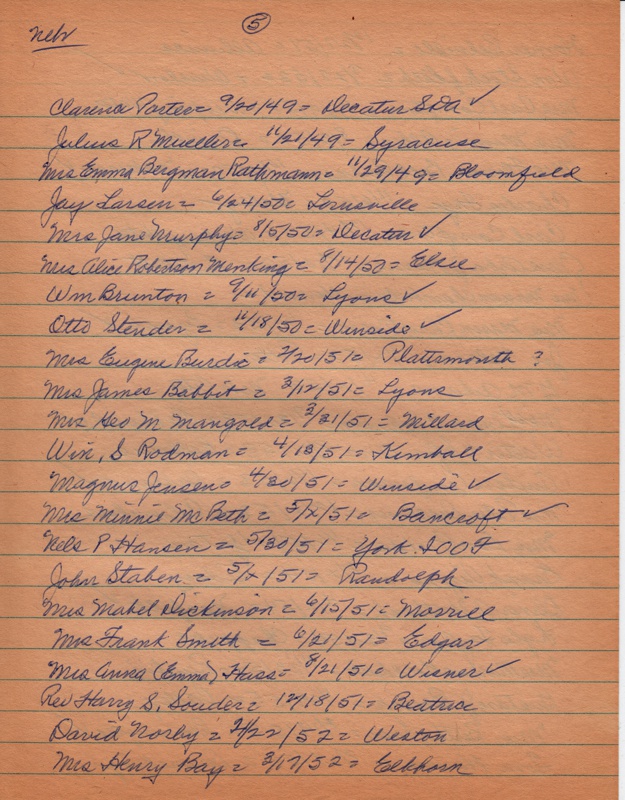 5
Nebr
Clarence Porter = 9/20/49 = Decatur SDA ✓
Julius R Mueller = 11/21/49 = Syracuse
Mrs Emma Bergman Rathmann = 11/29/49 = Bloomfield
Jay Larsen = 6/24/50 = Lousville
Mrs Jane Murphy = 8/5/50 = Decatur ✓
Mrs Alice Robertson Menking = 8/14/50 = Elsie
Wm Brunton = 9/11/50 = Lyons ✓
Otto Stender = 11/18/50 = Winside ✓
Mrs Eugene Burdic = 2/20/51 = Plattsmouth ?
Mrs James Babbit = 3/12/51 = Lyons
Mrs Geo M Mangold = 3/31/51 = Millard
Win, S Rodman = 4/13/51 = Kimball
Magnus Jensen = 4/30/51 = Winside ✓
Mrs Minnie McBeth = 5/x/51 = Bancroft ✓
Nels P Hansen = 5/30/51 = York IOOF
John Staben = 5/x/51 = Randolph
Mrs Mabel Dickinson = 6/15/51 = Morrill
Mrs Frank Smith = 6/21/51 = Edgar
Mrs Anna (Emma) Hass = 8/21/51 = Wisner ✓
Rev Harry S. Souder = 12/18/51 = Beatrice
David Norby = 2/22/52 = Weston
Mrs Henry Bay = 3/17/52 = Elkhorn